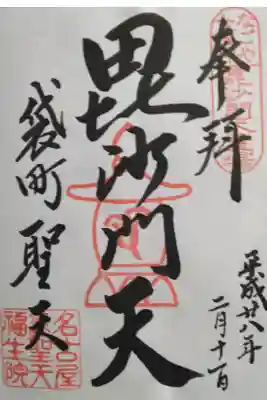 奉拝
平成廿八年
二月十一日
毘沙門天
袋町 聖天
名古屋
袋町聖天
福生院